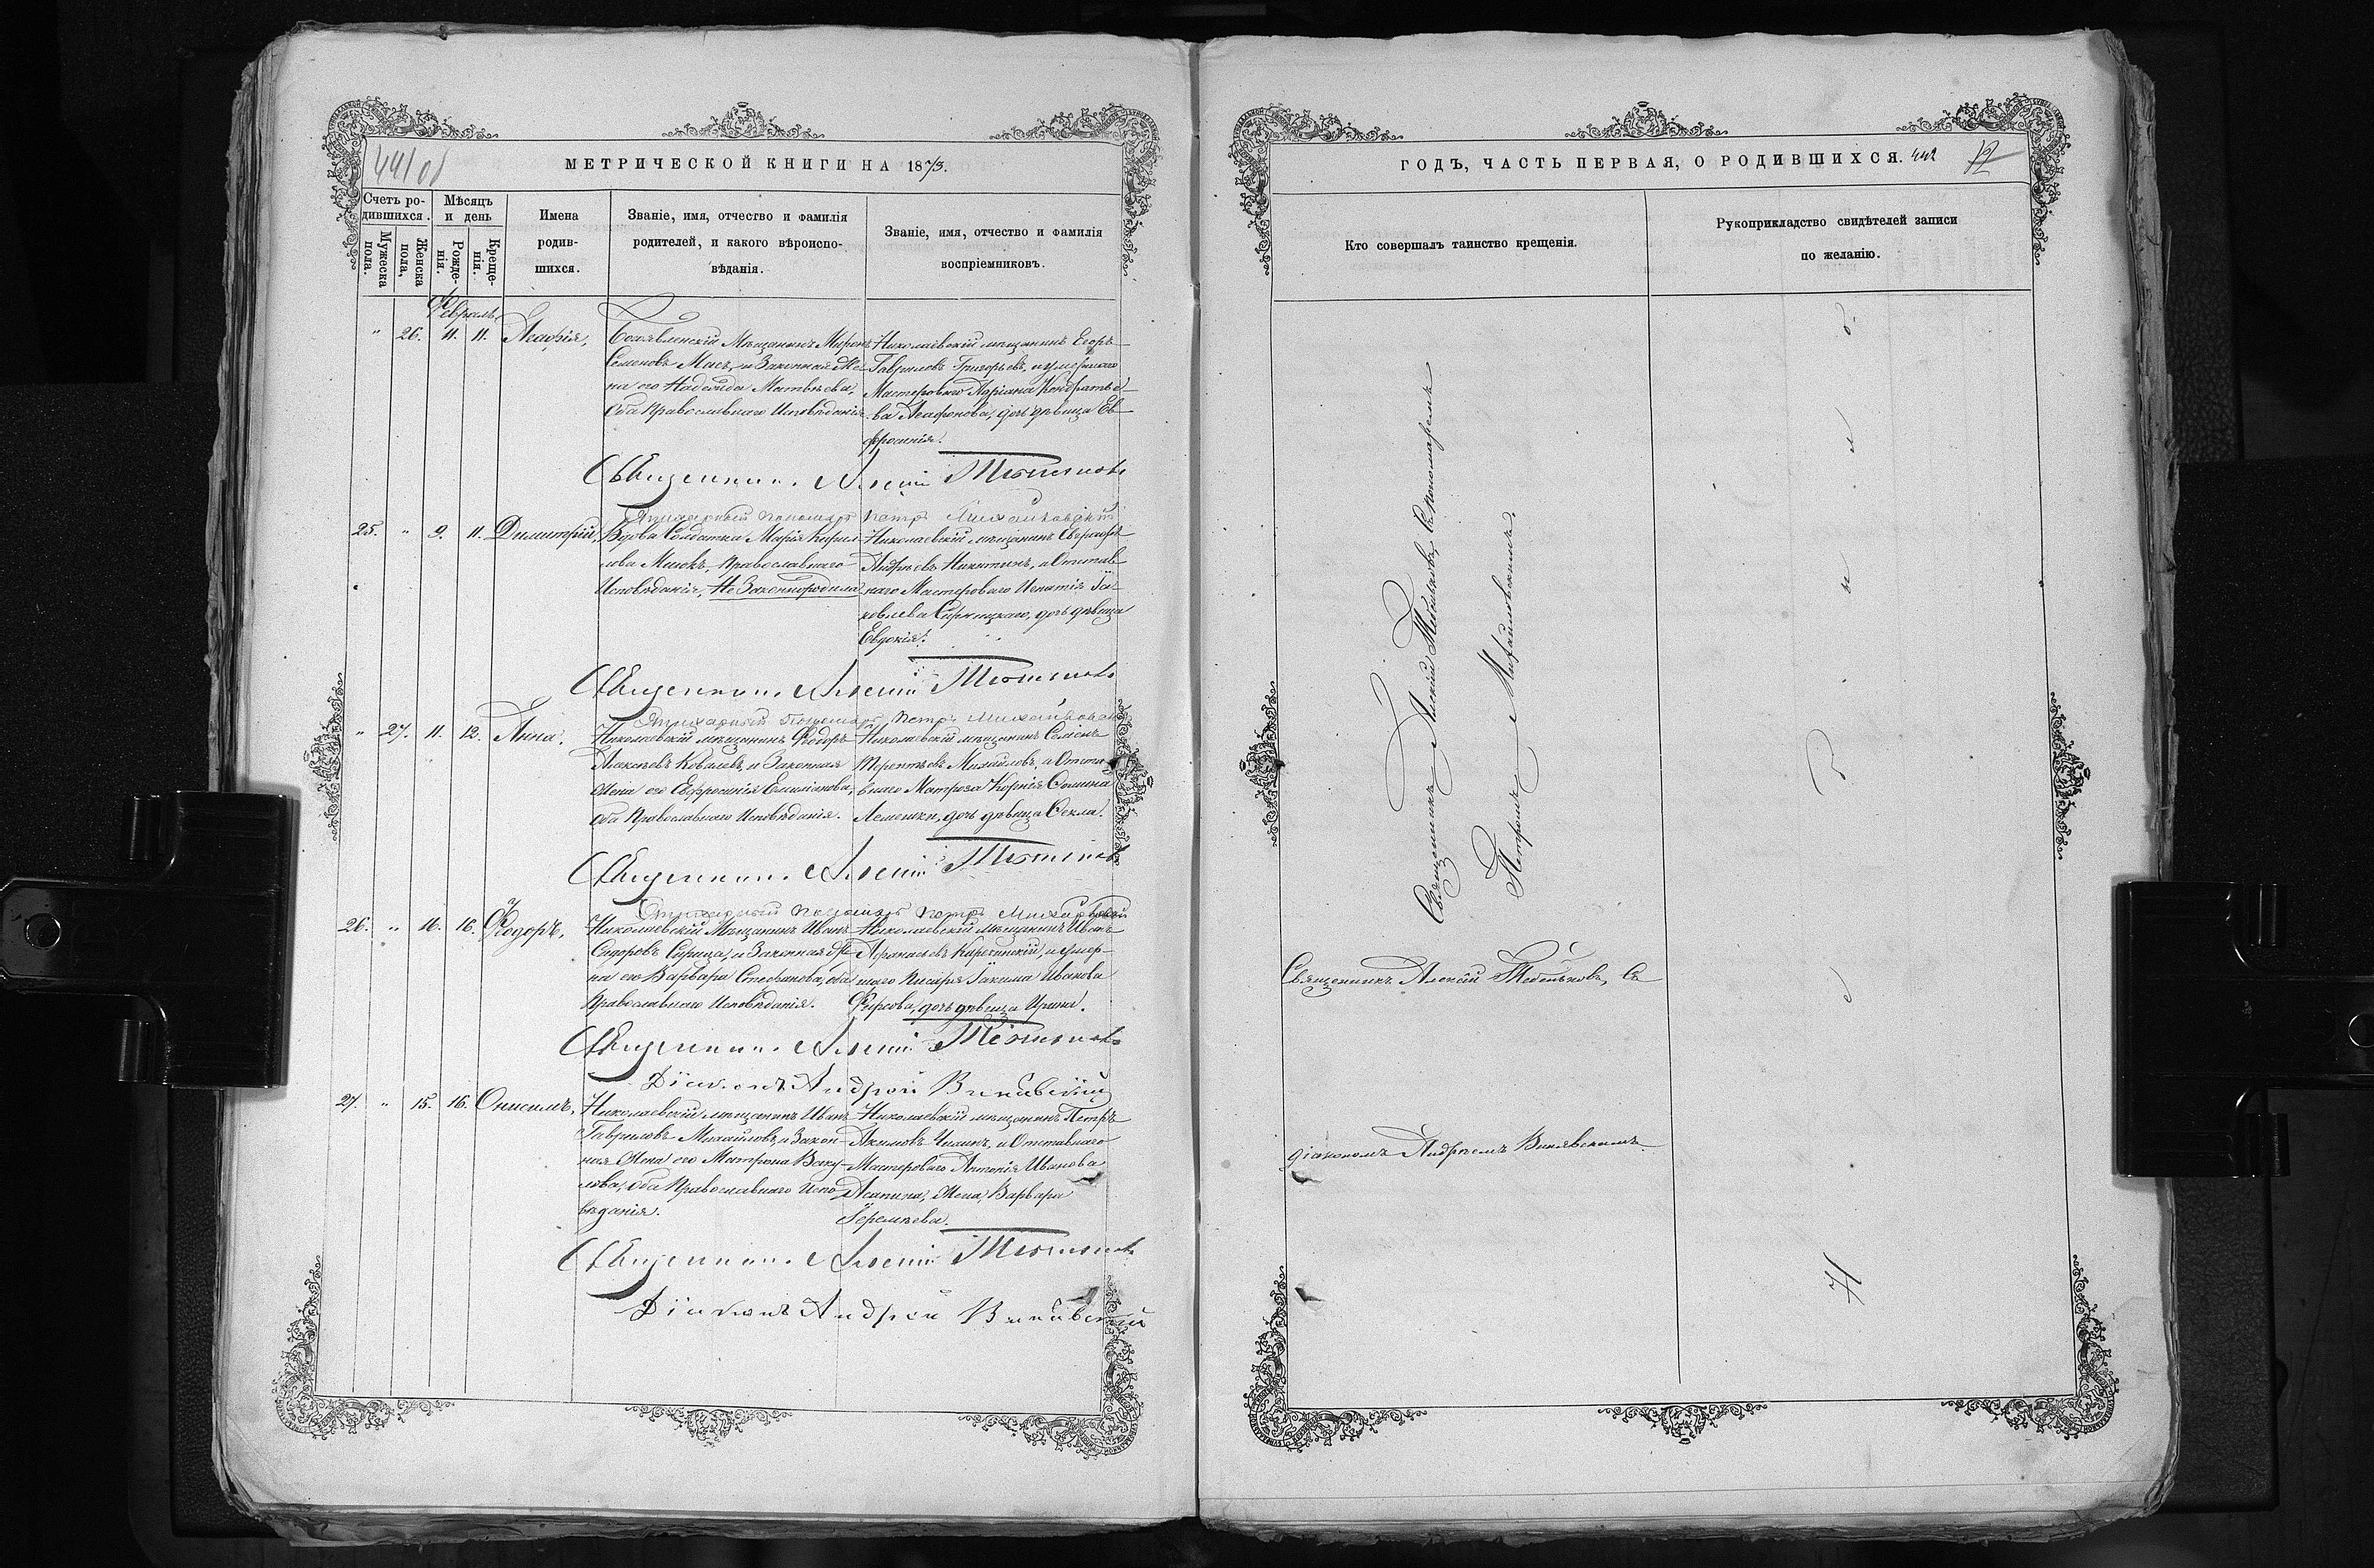 МЕТРИЧЕСКОЙ КНИГИ НА 1873.
Счетъ ро-
дившихся.
Мѣсяцъ
и день
Мужеска
пола.
Женска
пола,
Рожде-
нія.
Креще-
нія.
Имена
родив-
шихся.
Званіе, имя, отчество и фамилія
родителей, и какого вѣроиспо-
вѣданія.
Званіе, имя, отчество и фамилія
воспріемниковъ.
Февраль
" 26. 11. 11. Агафія,
Богоявленскій Мѣщанинъ Миронъ
Семеновъ и Законная Же-
на его Надежда Матвѣева,
Оба Православнаго Исповѣданія
Николаевскій мѣщанинъ Егоръ
Гавриловъ Григорьевъ, и умершаго
Мастероваго Адріана Кондратье-
ва Агафонова, дочь дѣвица Ев-
фросинія.
Священникъ Алексій
Петръ Михайловскій
25. " 9. 11. Димитрій,
Вдова Солдатка Марія Кирил-
лова Православнаго
Исповѣданія, Не Законнородила
Николаевскій мѣщанинъ
Андреевъ Никитинъ, и Отстав-
наго Мастероваго Игнатія Іа-
ковлева дочь дѣвица
Евдокія.
Священникъ Алексій
Петръ Михайловскій
" 27. 11. 12. Анна.
Николаевскій мѣщанинъ Ѳедоръ
Алексѣевъ Ковалевъ, и Законная
Жена его Евфросинія Емиліанова,
оба Православнаго Исповѣданія.
Николаевскій мѣщанинъ Семенъ
Терентьевъ Михайловъ, и Отста-
внаго Матроза Корнія Ѳомина
Лемешки, дочь дѣвица Ѳекла.
Священникъ Алексій
Петръ
26. " 16. 16. Ѳеодоръ,
Николаевскій Мѣщанинъ Иванъ
Сидоровъ и Законная Же-
на его Варвара Стефанова, оба
Православнаго Исповѣданія.
Николаевскій мѣщанинъ Иванъ
Афанасьевъ и умер-
шаго Писаря Іакима Иванова
Фирсова, дочь дѣвица Ирина.
Священникъ Алексій
Діаконъ Андрей
27. " 15. 16. Онисимъ,
Николаевскій мѣщанинъ Иванъ
Гавриловъ Михайловъ, и Закон-
ная Жена его Матрона Ваку-
лова, оба Православнаго Испо-
вѣданія.
Николаевскій мѣщанинъ Петръ
Акимовъ и Отставнаго
Мастероваго Антонія Иванова
Жена Варвара
Іеремѣева.
Священникъ Алексій
Діаконъ Андрей
ГОДЪ, ЧАСТЬ ПЕРВАЯ, О РОДИВШИХСЯ. 442 12
Кто совершалъ таинство крещенія.
Рукоприкладство свидѣтелей записи
по желанію.
Священникъ Алексій Съ пономаремъ
Петромъ Михайловскимъ.
Священникъ Алексій Съ
діакономъ Андреемъ